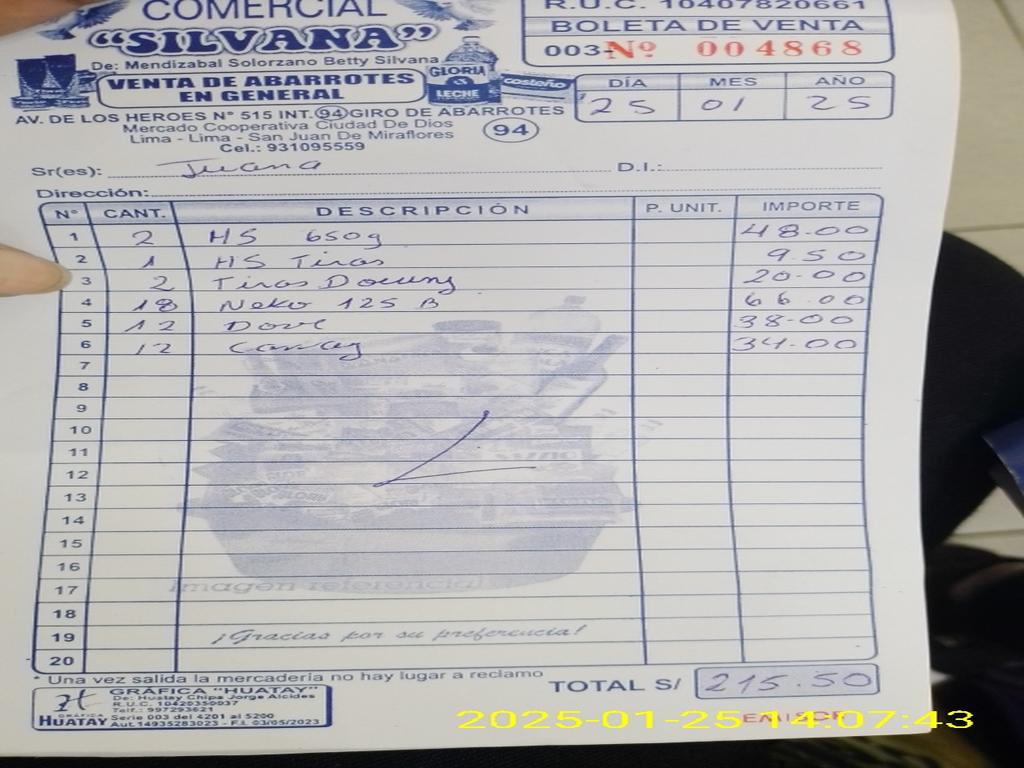 COMERCIAL
"SILVANA"
De: Mendizabal Solorzano Betty Silvana
VENTA DE ABARROTES
EN GENERAL
GLORIA
LECHE
costeño
AV. DE LOS HEROES N° 515 INT. 94 GIRO DE ABARROTES
Mercado Cooperativa Ciudad De Dios 94
Lima - Lima - San Juan De Miraflores
Cel.: 931095559
R.U.C. 10407820661
BOLETA DE VENTA
003-Nº 004868
DÍA MES AÑO
25 01 25
Sr(es): Juana D.I.:
Dirección:
N° CANT. DESCRIPCIÓN P. UNIT. IMPORTE
1 2 HS 650g 48.00
2 1 HS Tiras 9.50
3 2 Tiras Downy 20-00
4 18 Neko 125 B 66.00
5 12 Dove 38-00
6 12 34.00
7
8
9
10
11
12
13
14
15
16
17
Imagen referencial
18
19 ¡Gracias por su preferencia!
20
* Una vez salida la mercadería no hay lugar a reclamo
TOTAL S/ 215.50
GRÁFICA "HUATAY"
De: Huatay Chipa Jorge Alcides
R.U.C. 10420350037
Telf.: 997293621
GRÁFICA HUATAY Serie 003 del 4201 al 5200
Aut.14935283023 - F.I. 03/05/2023
EMISOR
2025-01-25 14:07:43